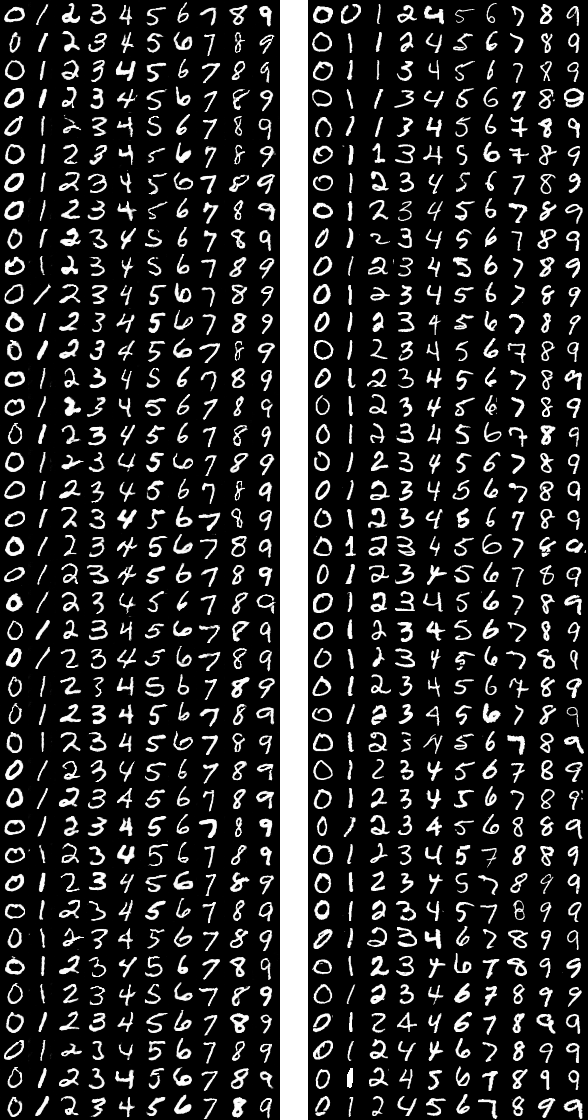 0 1 2 3 4 5 6 7 8 9
0 1 2 3 4 5 6 7 8 9
0 1 2 3 4 5 6 7 8 9
0 1 2 3 4 5 6 7 8 9
0 1 2 3 4 5 6 7 8 9
0 1 2 3 4 5 6 7 8 9
0 1 2 3 4 5 6 7 8 9
0 1 2 3 4 5 6 7 8 9
0 1 2 3 4 5 6 7 8 9
0 1 2 3 4 5 6 7 8 9
0 1 2 3 4 5 6 7 8 9
0 1 2 3 4 5 6 7 8 9
0 1 2 3 4 5 6 7 8 9
0 1 2 3 4 5 6 7 8 9
0 1 2 3 4 5 6 7 8 9
0 1 2 3 4 5 6 7 8 9
0 1 2 3 4 5 6 7 8 9
0 1 2 3 4 5 6 7 8 9
0 1 2 3 4 5 6 7 8 9
0 1 2 3 4 5 6 7 8 9
0 1 2 3 4 5 6 7 8 9
0 1 2 3 4 5 6 7 8 9
0 1 2 3 4 5 6 7 8 9
0 1 2 3 4 5 6 7 8 9
0 1 2 3 4 5 6 7 8 9
0 1 2 3 4 5 6 7 8 9
0 1 2 3 4 5 6 7 8 9
0 1 2 3 4 5 6 7 8 9
0 1 2 3 4 5 6 7 8 9
0 1 2 3 4 5 6 7 8 9
0 1 2 3 4 5 6 7 8 9
0 1 2 3 4 5 6 7 8 9
0 1 2 3 4 5 6 7 8 9
0 1 2 3 4 5 6 7 8 9
0 1 2 3 4 5 6 7 8 9
0 1 2 3 4 5 6 7 8 9
0 1 2 3 4 5 6 7 8 9
0 1 2 3 4 5 6 7 8 9
0 1 2 3 4 5 6 7 8 9
0 1 2 3 4 5 6 7 8 9
0 0 1 2 4 5 6 7 8 9
0 1 1 2 4 5 6 7 8 9
0 1 1 3 4 5 6 7 8 9
0 1 1 3 4 5 6 7 8 9
0 1 1 3 4 5 6 7 8 9
0 1 1 3 4 5 6 7 8 9
0 1 2 3 4 5 6 7 8 9
0 1 2 3 4 5 6 7 8 9
0 1 2 3 4 5 6 7 8 9
0 1 2 3 4 5 6 7 8 9
0 1 2 3 4 5 6 7 8 9
0 1 2 3 4 5 6 7 8 9
0 1 2 3 4 5 6 7 8 9
0 1 2 3 4 5 6 7 8 9
0 1 2 3 4 5 6 7 8 9
0 1 2 3 4 5 6 7 8 9
0 1 2 3 4 5 6 7 8 9
0 1 2 3 4 5 6 7 8 9
0 1 2 3 4 5 6 7 8 9
0 1 2 3 4 5 6 7 8 9
0 1 2 3 4 5 6 7 8 9
0 1 2 3 4 5 6 7 8 9
0 1 2 3 4 5 6 7 8 9
0 1 2 3 4 5 6 7 8 9
0 1 2 3 4 5 6 7 8 9
0 1 2 3 4 5 6 7 8 9
0 1 2 3 4 5 6 7 8 9
0 1 2 3 4 5 6 7 8 9
0 1 2 3 4 5 6 7 8 9
0 1 2 3 4 5 6 8 8 9
0 1 2 3 4 5 7 8 8 9
0 1 2 3 4 5 7 8 9 9
0 1 2 3 4 5 7 8 9 9
0 1 2 3 4 6 7 8 9 9
0 1 2 3 4 6 7 8 9 9
0 1 2 3 4 6 7 8 9 9
0 1 2 4 4 6 7 8 9 9
0 1 2 4 4 6 7 8 9 9
0 1 2 4 5 6 7 8 9 9
0 1 2 4 5 6 7 8 9 9